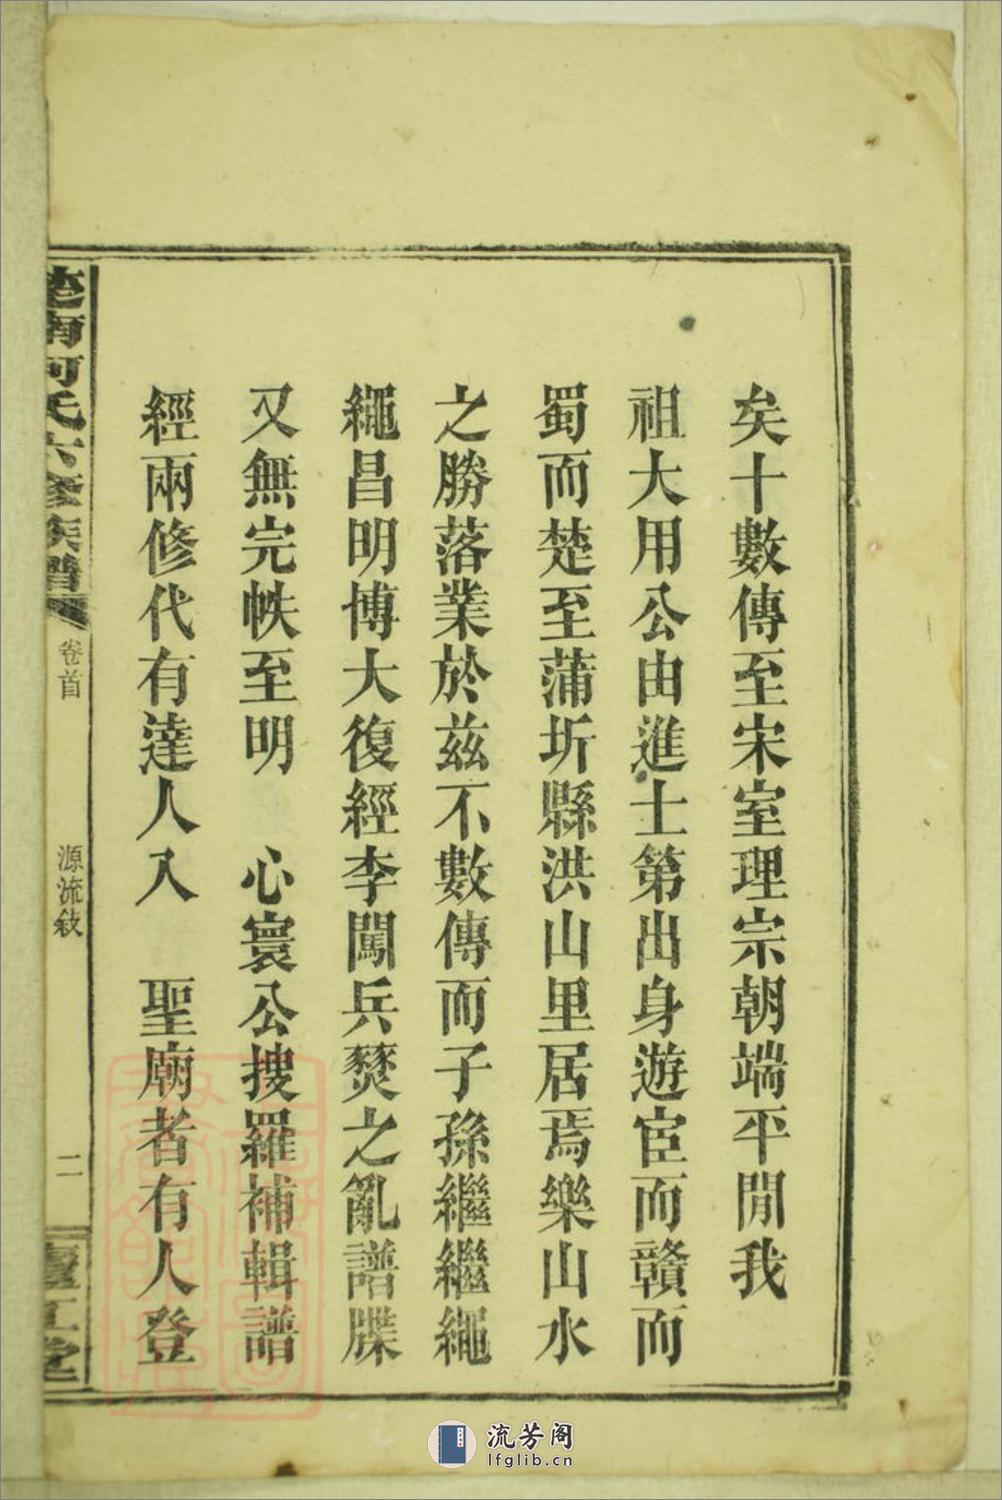 矣十數傳至宋室理宗朝端平閒我
祖大用公由進士第出身遊宦而贛而
蜀而楚至蒲圻縣洪山里居焉樂山水
之勝落業於茲不數傳而子孫繼繼繩
繩昌明博大復經李闖兵燹之亂譜牒
又無完帙至明　心寰公搜羅補輯譜
經兩修代有達人入　聖廟者有人登
楚南何氏六修族譜
卷首
源流敍
二
廬江堂
流芳阁
lfglib.cn